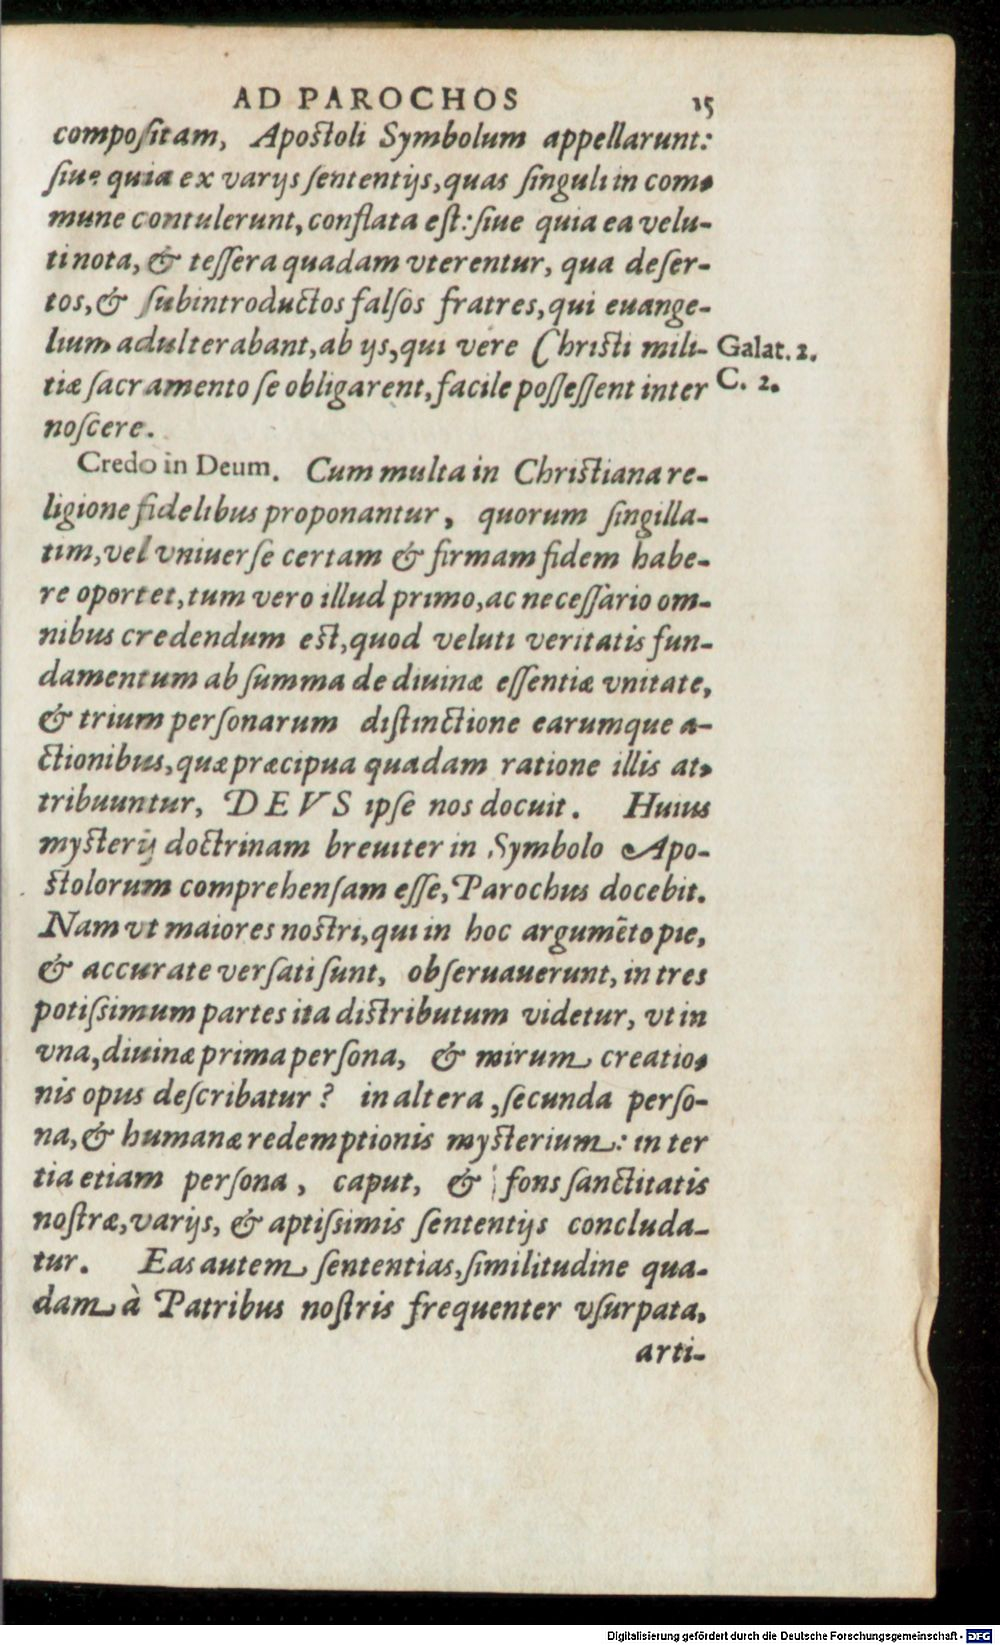 AD PAROCHOS 15
compositam, Apostoli Symbolum appellarunt:
siue quia ex varijs sententijs, quas singuli in com-
mune contulerunt, conflata est: siue quia ea velu-
ti nota, & tessera quadam vterentur, qua deser-
tos, & subintroductos falsos fratres, qui euange-
lium adulterabant, ab ijs, qui vere Christi mili-
Galat. 2.
tiæ sacramento se obligarent, facile possessent inter
C. 2.
noscere.
Credo in Deum. Cum multa in Christiana re-
ligione fidelibus proponantur, quorum singilla-
tim, vel vniuerse certam & firmam fidem habe-
re oportet, tum vero illud primo, ac necessario om-
nibus credendum est, quod veluti veritatis fun-
damentum ab summa de diuinæ essentiæ vnitate,
& trium personarum distinctione earumque a-
ctionibus, quæ præcipua quadam ratione illis at-
tribuuntur, DEVS ipse nos docuit. Huius
mysterij doctrinam breuiter in Symbolo Apo-
stolorum comprehensam esse, Parochus docebit.
Nam vt maiores nostri, qui in hoc argumēto pie,
& accurate versati sunt, obseruauerunt, in tres
potissimum partes ita distributum videtur, vt in
vna, diuinæ prima persona, & mirum creatio-
nis opus describatur? in altera, secunda perso-
na, & humanæ redemptionis mysterium: in ter
tia etiam persona, caput, & fons sanctitatis
nostræ, varijs, & aptissimis sententijs concluda-
tur. Eas autem sententias, similitudine qua-
dam à Patribus nostris frequenter vsurpata,
arti-
Digitalisierung gefördert durch die Deutsche Forschungsgemeinschaft - DFG